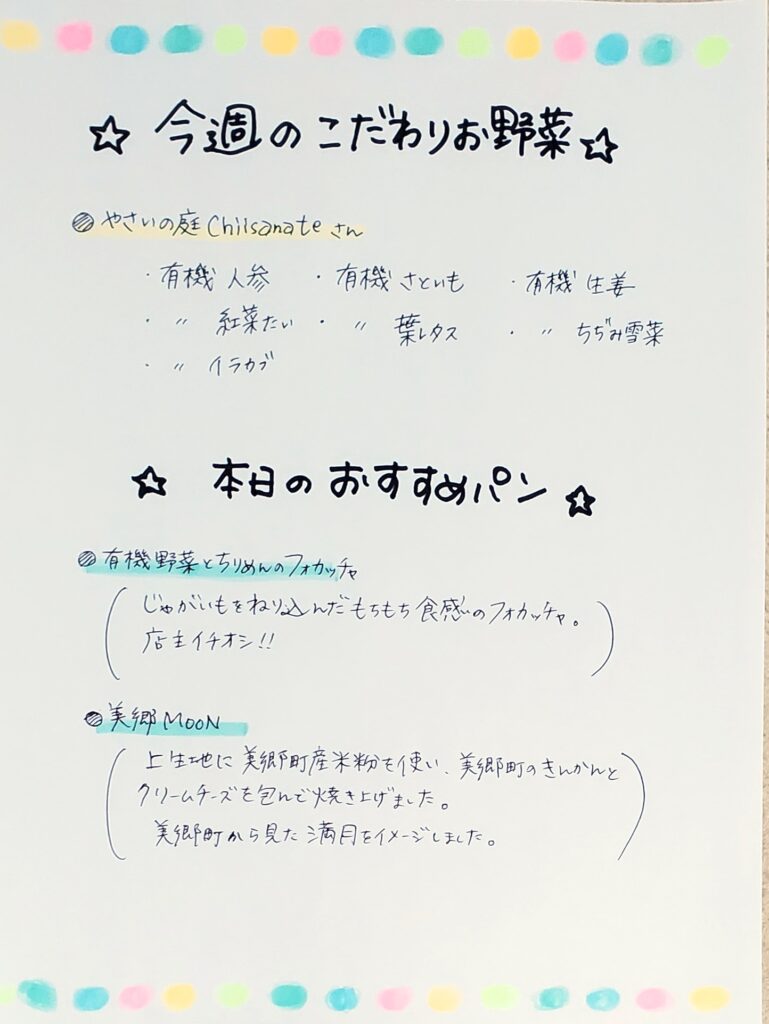 ☆ 今週のこだわりお野菜 ☆
◎ やさいの庭 Chiisanate さん
・有機 人参 ・有機 さといも ・有機 生姜
・ 〃 紅菜たい ・ 〃 葉レタス ・ 〃 ちぢみ雪菜
・ 〃 イラカブ
☆ 本日の おすすめパン ☆
◎ 有機野菜とちりめんのフォカッチャ
(じゃがいもをねり込んだもちもち食感のフォカッチャ。
店主イチオシ!!)
◎ 美郷MOON
(上生地に美郷町産米粉を使い、美郷町のきんかんと
クリームチーズを包んで焼き上げました。
美郷町から見た満月をイメージしました。)